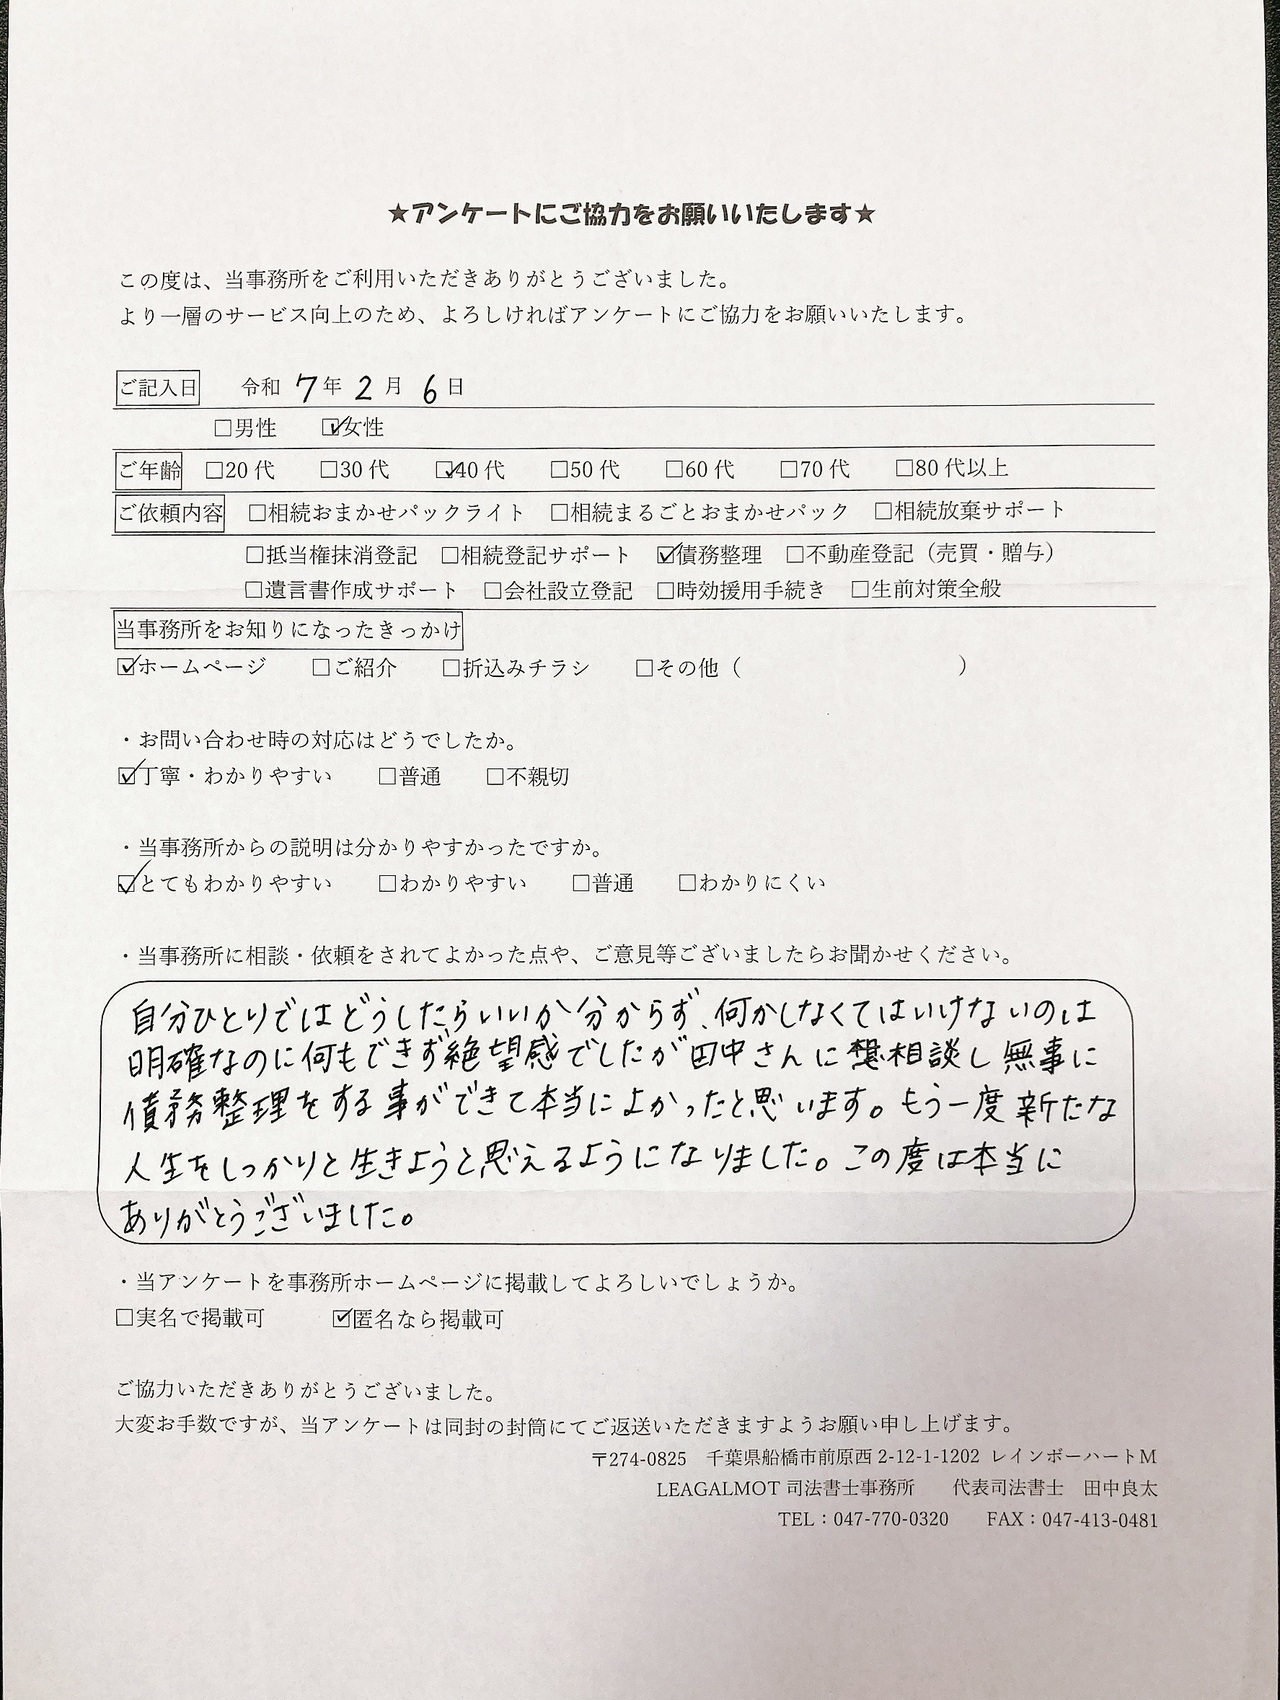 ★アンケートにご協力をお願いいたします★
この度は、当事務所をご利用いただきありがとうございました。
より一層のサービス向上のため、よろしければアンケートにご協力をお願いいたします。
ご記入日 令和 7 年 2 月 6 日
□男性 ☑女性
ご年齢 □20 代 □30 代 ☑40 代 □50 代 □60 代 □70 代 □80 代以上
ご依頼内容 □相続おまかせパックライト □相続まるごとおまかせパック □相続放棄サポート
□抵当権抹消登記 □相続登記サポート ☑債務整理 □不動産登記（売買・贈与）
□遺言書作成サポート □会社設立登記 □時効援用手続き □生前対策全般
当事務所をお知りになったきっかけ
☑ホームページ □ご紹介 □折込みチラシ □その他（ ）
・お問い合わせ時の対応はどうでしたか。
☑丁寧・わかりやすい □普通 □不親切
・当事務所からの説明は分かりやすかったですか。
☑とてもわかりやすい □わかりやすい □普通 □わかりにくい
・当事務所に相談・依頼をされてよかった点や、ご意見等ございましたらお聞かせください。
自分ひとりではどうしたらいいか分からず、何かしなくてはいけないのは
明確なのに何もできず絶望感でしたが田中さんに相談し無事に
債務整理をする事ができて本当によかったと思います。もう一度新たな
人生をしっかりと生きようと思えるようになりました。この度は本当に
ありがとうございました。
・当アンケートを事務所ホームページに掲載してよろしいでしょうか。
□実名で掲載可 ☑匿名なら掲載可
ご協力いただきありがとうございました。
大変お手数ですが、当アンケートは同封の封筒にてご返送いただきますようお願い申し上げます。
〒274-0825 千葉県船橋市前原西 2-12-1-1202 レインボーハートM
LEAGALMOT 司法書士事務所 代表司法書士 田中良太
TEL：047-770-0320 FAX：047-413-0481